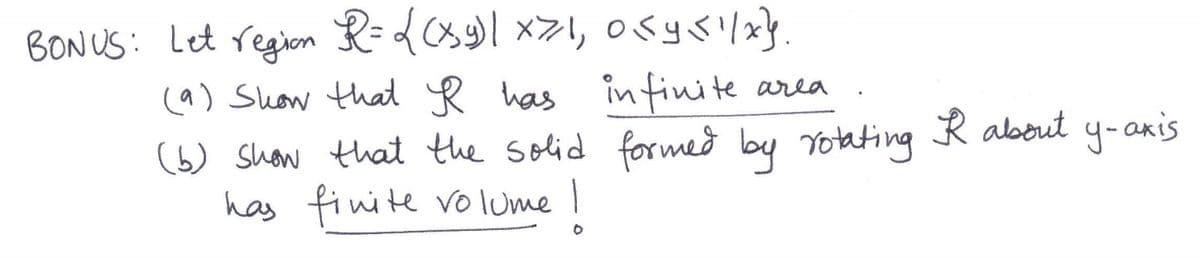 BONUS: Let region R = {(x,y) | x ≥ 1, 0 ≤ y ≤ 1/x}.
(a) Show that R has infinite area.
(b) Show that the solid formed by rotating R about y-axis
has finite volume!